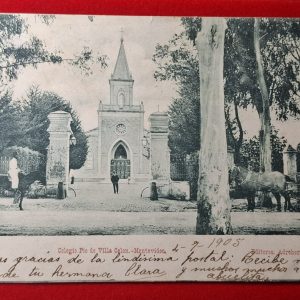 Colegio Pio de Villa Colon.-Montevideo. 4-9-1905 Editores,
as gracias de la lindisima postal; Recibe
de tu hermana Clara y muchos
abuelita